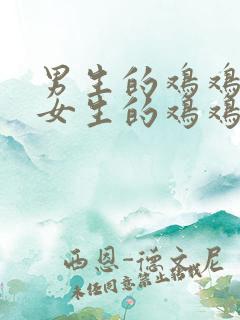 男生的鸡鸡
女生的鸡鸡
西恩-德文尼
未经同意禁止转载